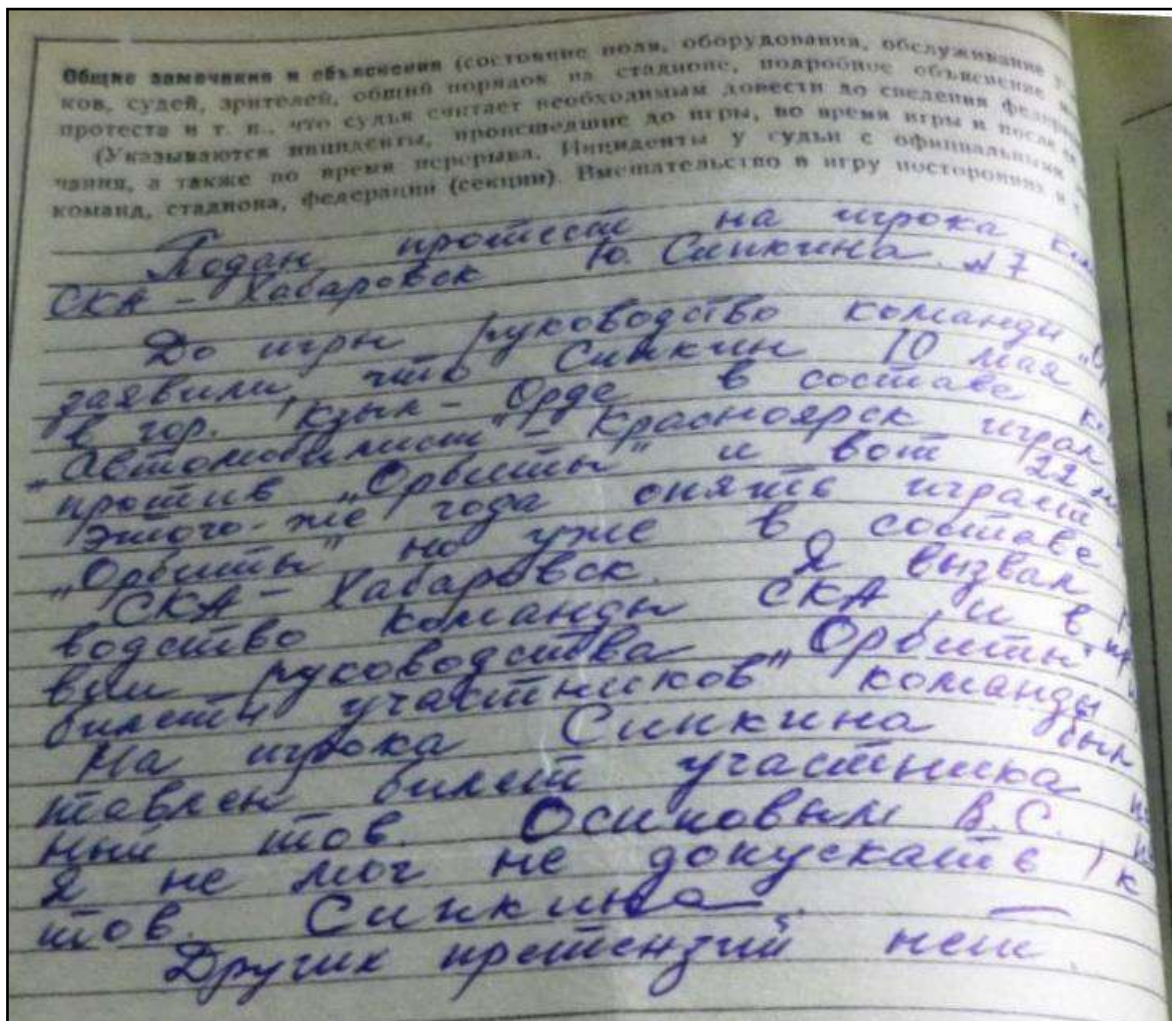 Общие замечания и объяснения (состояние поля, оборудования, обслуживание
ков, судей, зрителей, общий порядок на стадионе, подробное объяснение
протеста и т. п., что судья считает необходимым довести до сведения
(Указываются инциденты, происшедшие до игры, во время игры и после
чания, а также во время перерыва. Инциденты у судьи с официальными
команд, стадиона, федерации (секции). Вмешательство в игру посторонних и
Подан протест на игрока
СКА – Хабаровск Ю. Синкина. №7
До игры руководство команды
заявили, что Синкин 10 мая
в гор. Кзыл-Орде в составе
„Автомобилист" – Красноярск играл
против „Орбиты" и вот 22
этого-же года опять играет
„Орбиты" но уже в составе
СКА – Хабаровск. Я вызвал
водство команды СКА, и в
вии руководства „Орбиты"
билеты участников" команды
На игрока Синкина был
тавлен билет участника
ный тов. Осиповым В.С.
Я не мог не допускать к
тов. Синкина.
Других претензий нет